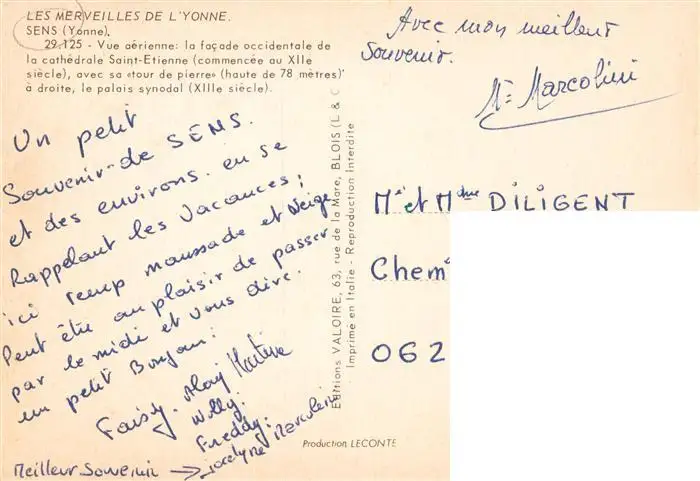 LES MERVEILLES DE L'YONNE.
SENS (Yonne).
29.125 - Vue aérienne: la façade occidentale de
la cathédrale Saint-Etienne (commencée au XIIe
siècle), avec sa «tour de pierre» (haute de 78 mètres)
à droite, le palais synodal (XIIIe siècle).
Un petit
Souvenir de SENS.
et des environs. en se
Rappelant les Vacances;
ici temp maussade et Neige
Peut être au plaisir de passer
par le midi et vous dire.
un petit Bonjour:
Martine
Willy.
Freddy.
Jocelyne Marcolini
Meilleur Souvenir →
Editions VALOIRE, 63, rue de la Mare, BLOIS (L & C
Imprimé en Italie - Reproduction Interdite
Production LECONTE
Avec mon meilleur
Souvenir.
Marcolini
Mr et Mdme DILIGENT
Chem
062